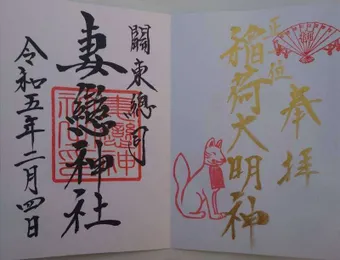 奉拝
正一位
稲荷大明神
關東總司
妻戀神社
令和五年二月四日